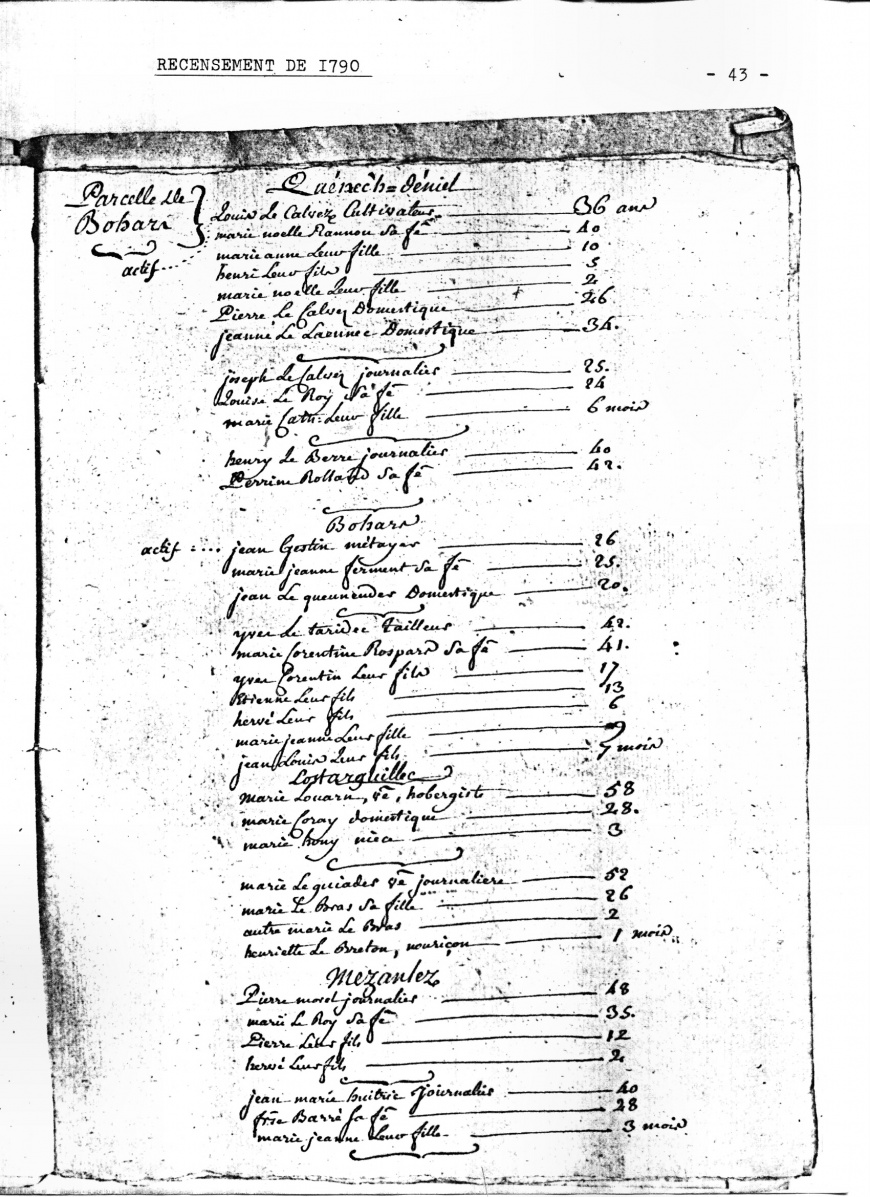 RECENSEMENT DE I790
- 43 -
Parcelle de
Bohars
Quénec'h=déniel
actif....
Louis Le Calvez Cultivateur 36 ans
marie noelle Rannou Sa fe 40
marie anne Leur fille 10
henri Leur fils 5
marie noelle Leur fille 2
Pierre Le Calvez Domestique 26
jeanne Le Laennec Domestique 34.
joseph Le Calvez journalier 25.
Louise Le Roy Sa fe 24
marie Cath: Leur fille 6 mois
henry Le Berre journalier 40
Perrine Rolland Sa fe 42.
Bohars
actif.... jean Gestin métayer 26
marie jeanne ferment Sa fe 25.
jean Le queunendes Domestique 20.
yves Le taridec Tailleur 42.
marie Corentine Rospars Sa fe 41.
yves Corentin Leur fils 17
Etienne Leur fils 13
hervé Leur fils 6
marie jeanne Leur fille
jean Louis Leur fils 7 mois
Lostarguillec
marie Louarn, ve, hobergiste 58
marie Coray domestique 28.
marie niece 3
marie Le quiader ve journaliere 52
marie Le Bras Sa fille 26
autre marie Le Bras 2
henriette Le Breton, nouriçon 1 mois
Mezantez
Pierre morel journalier 48
marie Le Roy Sa fe 35.
Pierre Leur fils 12
hervé Leur fils 2
jean marie huitric journalier 40
frse Barré Sa fe 28
marie jeanne Leur fille 3 mois